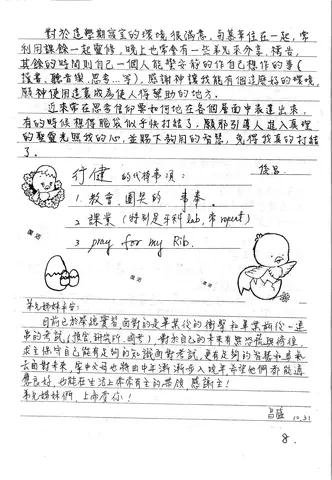 對於這學期寢室的環境，很滿意，句基等住在一起，常
利用課餘一起靈修，晚上也常會有一些弟兄來分享、禱告，
其餘的時間則自己一個人能安靜的作自己想作的事(
讀書、聽音樂、思考…等)，感謝神讓我能有個這麼好的環境，
願神使用這裏成為使人得幫助的地方。
近來常在思考信仰要如何能在各個層面中表達出來，
有的時候想得腦袋似乎快打結了，願那引導人進入真理
的聖靈光照我的心，並賜下夠用的智慧，免得我真的打結
了。
俊昌
行健 的代禱事項：
1. 教會、團契的事奉。
2. 課業 (特別是牙科 lab, 常 repeat)
3. pray for my Rib.
復活
復活
復活
弟兄姊妹平安：
目前已於榮總實習，面對的是畢業後的衝擊和畢業前後一連
串的考試 (預官、研究所、國考)，對於自己的未來有無
求主保守自己能有足夠的知識面對考試，更有足夠的智慧和勇氣
去面對未來，家中父母也將由中年漸漸步入晚年，希望他們都能適
應良好，也能在生活上常常有主的帶領，感謝主！
弟兄姊妹們，上帝愛你！
昌盛 10.31
8.